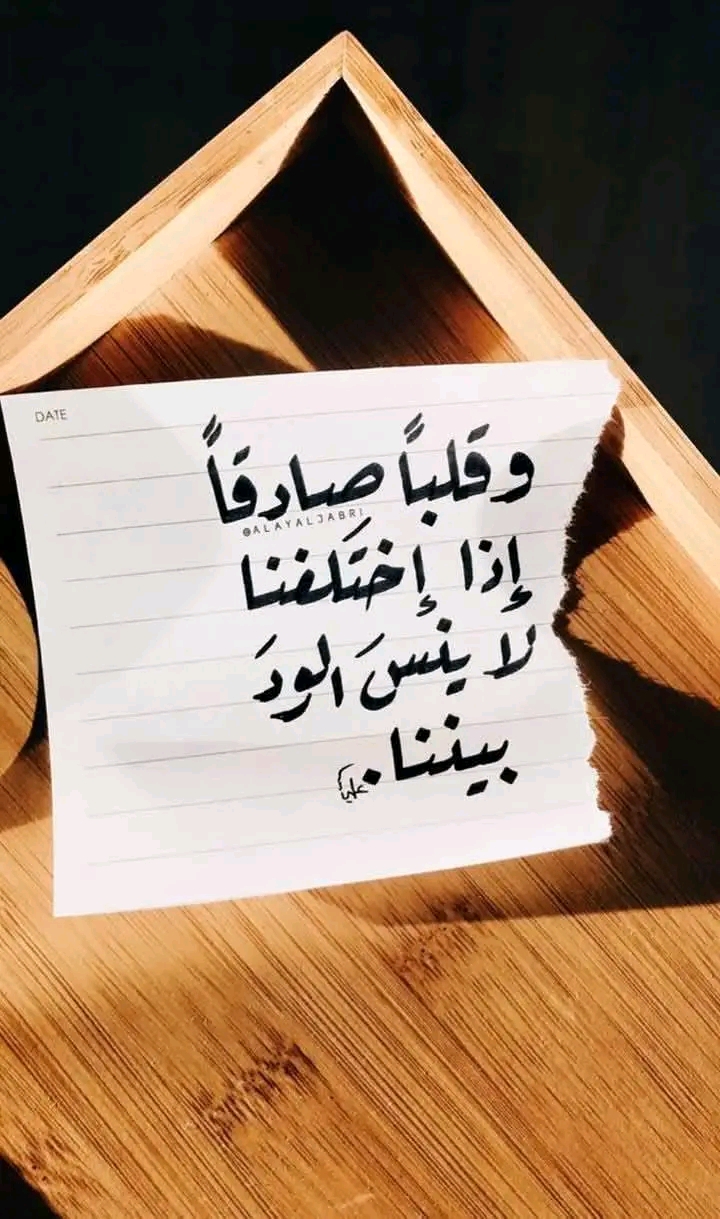 DATE
وقلباً صادقاً
@ALAYALJABRI
إذا إختَلفنا
لا ينسَ الودَ
بيننا.